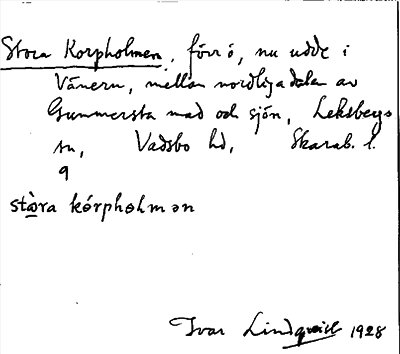 Stora Korpholmen, förr ö, nu udde i
Vänern, mellan nordliga delen av
Gunnersta mad och sjön, Leksbergs
sn, Vadsbo hd, Skarab. l.
9
stɷ̀ra kórphɷlmən
Ivar Lindquist 1928